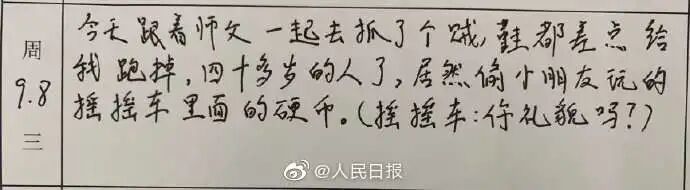 周
9.8
三
今天跟着师父一起去抓了个贼,鞋都差点给
我跑掉,四十多岁的人了,居然偷小朋友玩的
摇摇车里面的硬币。(摇摇车:你礼貌吗?)
@人民日报